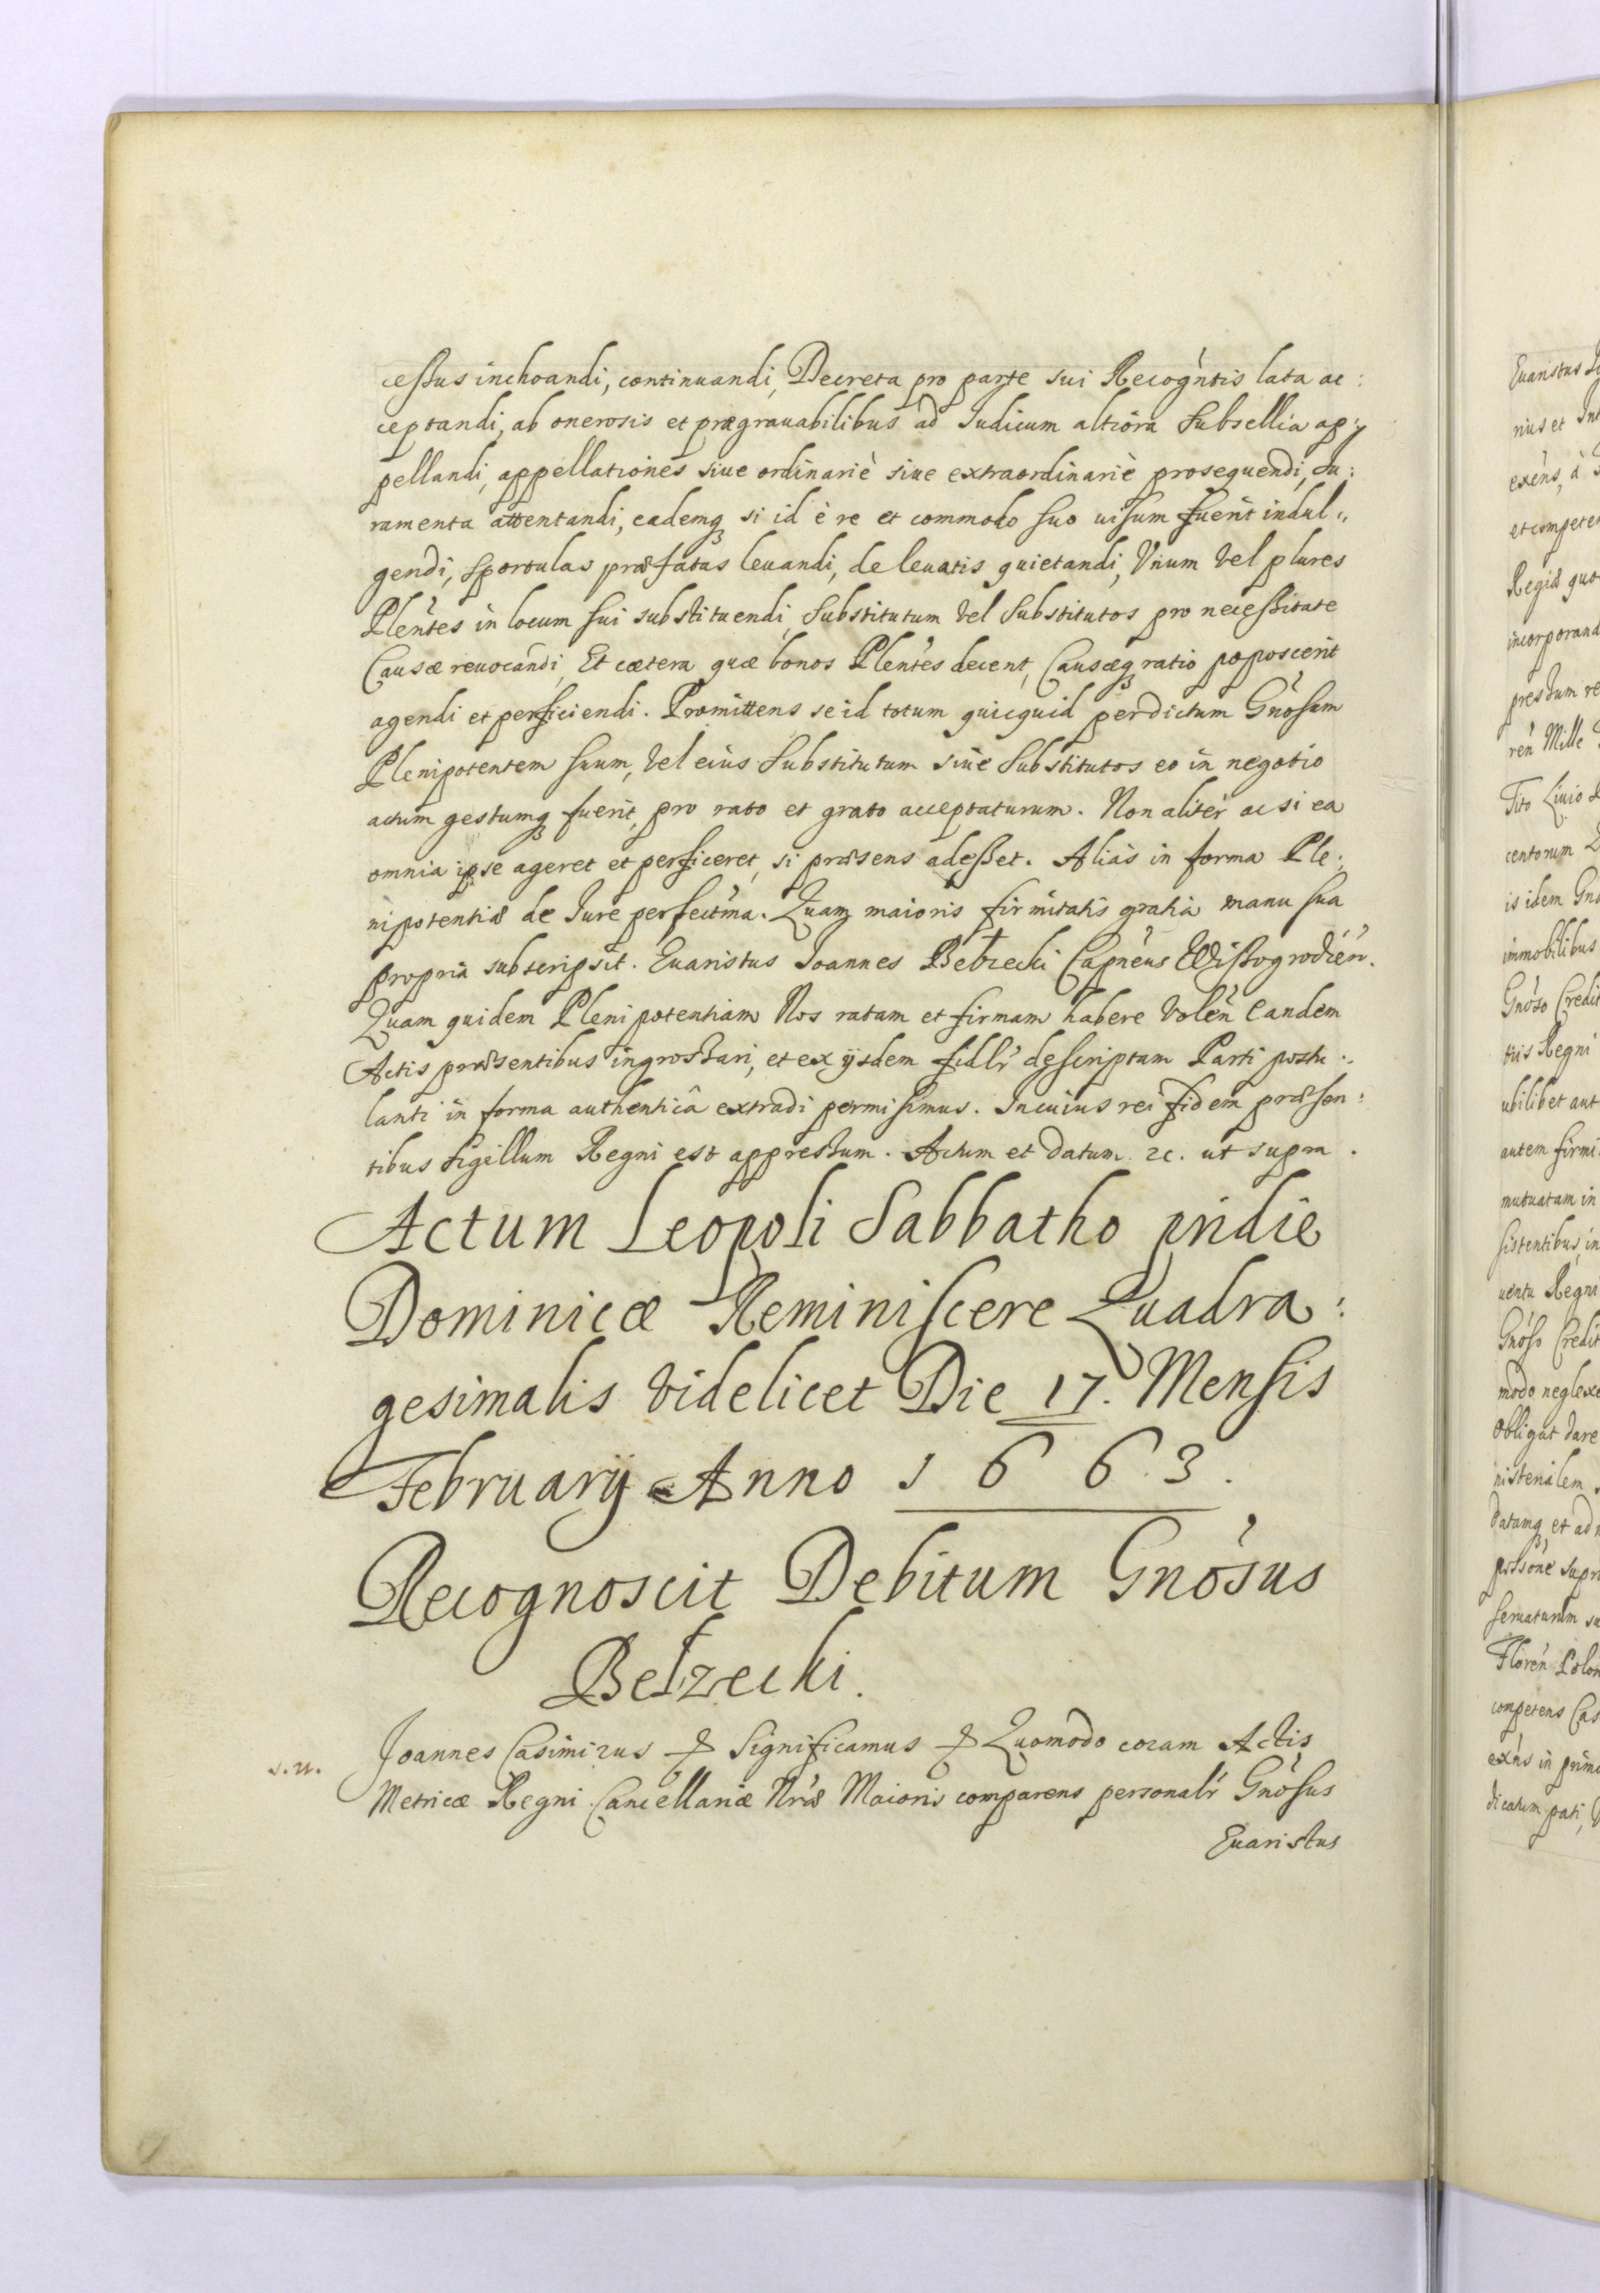 cessus inchoandi, continuandi, Decreta pro parte sui Recogńtis lata ac:
ceptandi, ab onerosis et prægrauabilibus ad Iudicum altiora Subsellia ap:
pellandi, appellationes siue ordinariè siue extraordinariè prosequendi, Iu:
ramenta attentandi, eademq; si id è re et commodo suo uisum fuerit indul:
gendi, Sportulas præfatas leuandi, de leuatis quietandi, Vnum Vel plures
Pleńtes in locum sui substituendi, Substitutum Vel Substitutos pro necessitate
Causæ reuocandi, Et cætera quæ bonos Pleńtes decent, Causæq; ratio poposcerit
agendi et perficiendi. Promittens se id totum quicquid per dictum Gńosum
Plenipotentem suum, Vel eius Substitutum siue Substitutos eo in negotio
actum gestumq; fuerit, pro rato et grato acceptaturum. Non aliter ac si ea
omnia ipse ageret et perficeret, si præsens adesset. Aliàs in forma Ple:
nipotentiæ de Iure perfectma. Quam maioris firmitatis gratia manu sua
propria subscripsit. Euaristus Ioannes Bełzecki Capńeus Wissogrodień.
Quam quidem Plenipotentiam Nos ratam et firmam habere Voleń eandem
Actis præsentibus ingrossari, et ex ijsdem fidlr descriptam Parti postu:
lanti in forma authenticâ extradi permisimus. In cuius rei fidem præsen:
tibus Sigillum Regni est appressum. Actum et datum. &c. ut supra.
Actum Leopoli Sabbatho pridie
Dominicæ Reminiscere Quadra:
gesimalis Videlicet Die 17. Mensis
February Anno 1663.
Recognoscit Debitum Gnósus
Bełzecki.
s.n. Joannes Casimirus & Significamus & Quomodo coram Actis
Metricæ Regni Cancellariæ Nræ Maioris comparens personalr Gnósus
Euaristus
Euaristus
rius et
exens, à
Regiæ
incorporand
Mille
Tito Liuio
centorum
is idem
immobilibus
Gnóso Credit
Regni
ubilibet aut
autem firmi
mutuatam in
sistentibus, in
uentu Regni
Gnóso Credit
modo neglexe
obligat dare
datamq; et ad
seruaturum
Floreń Polon
competens
dicatum pati,